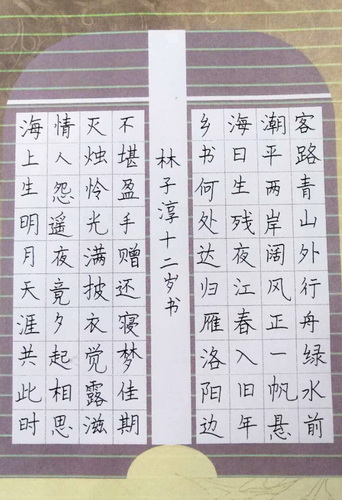 客路青山外行舟绿水前
潮平两岸阔风正一帆悬
海日生残夜江春入旧年
乡书何处达归雁洛阳边
海上生明月天涯共此时
情人怨遥夜竟夕起相思
灭烛怜光满披衣觉露滋
不堪盈手赠还寝梦佳期
林子淳十二岁书